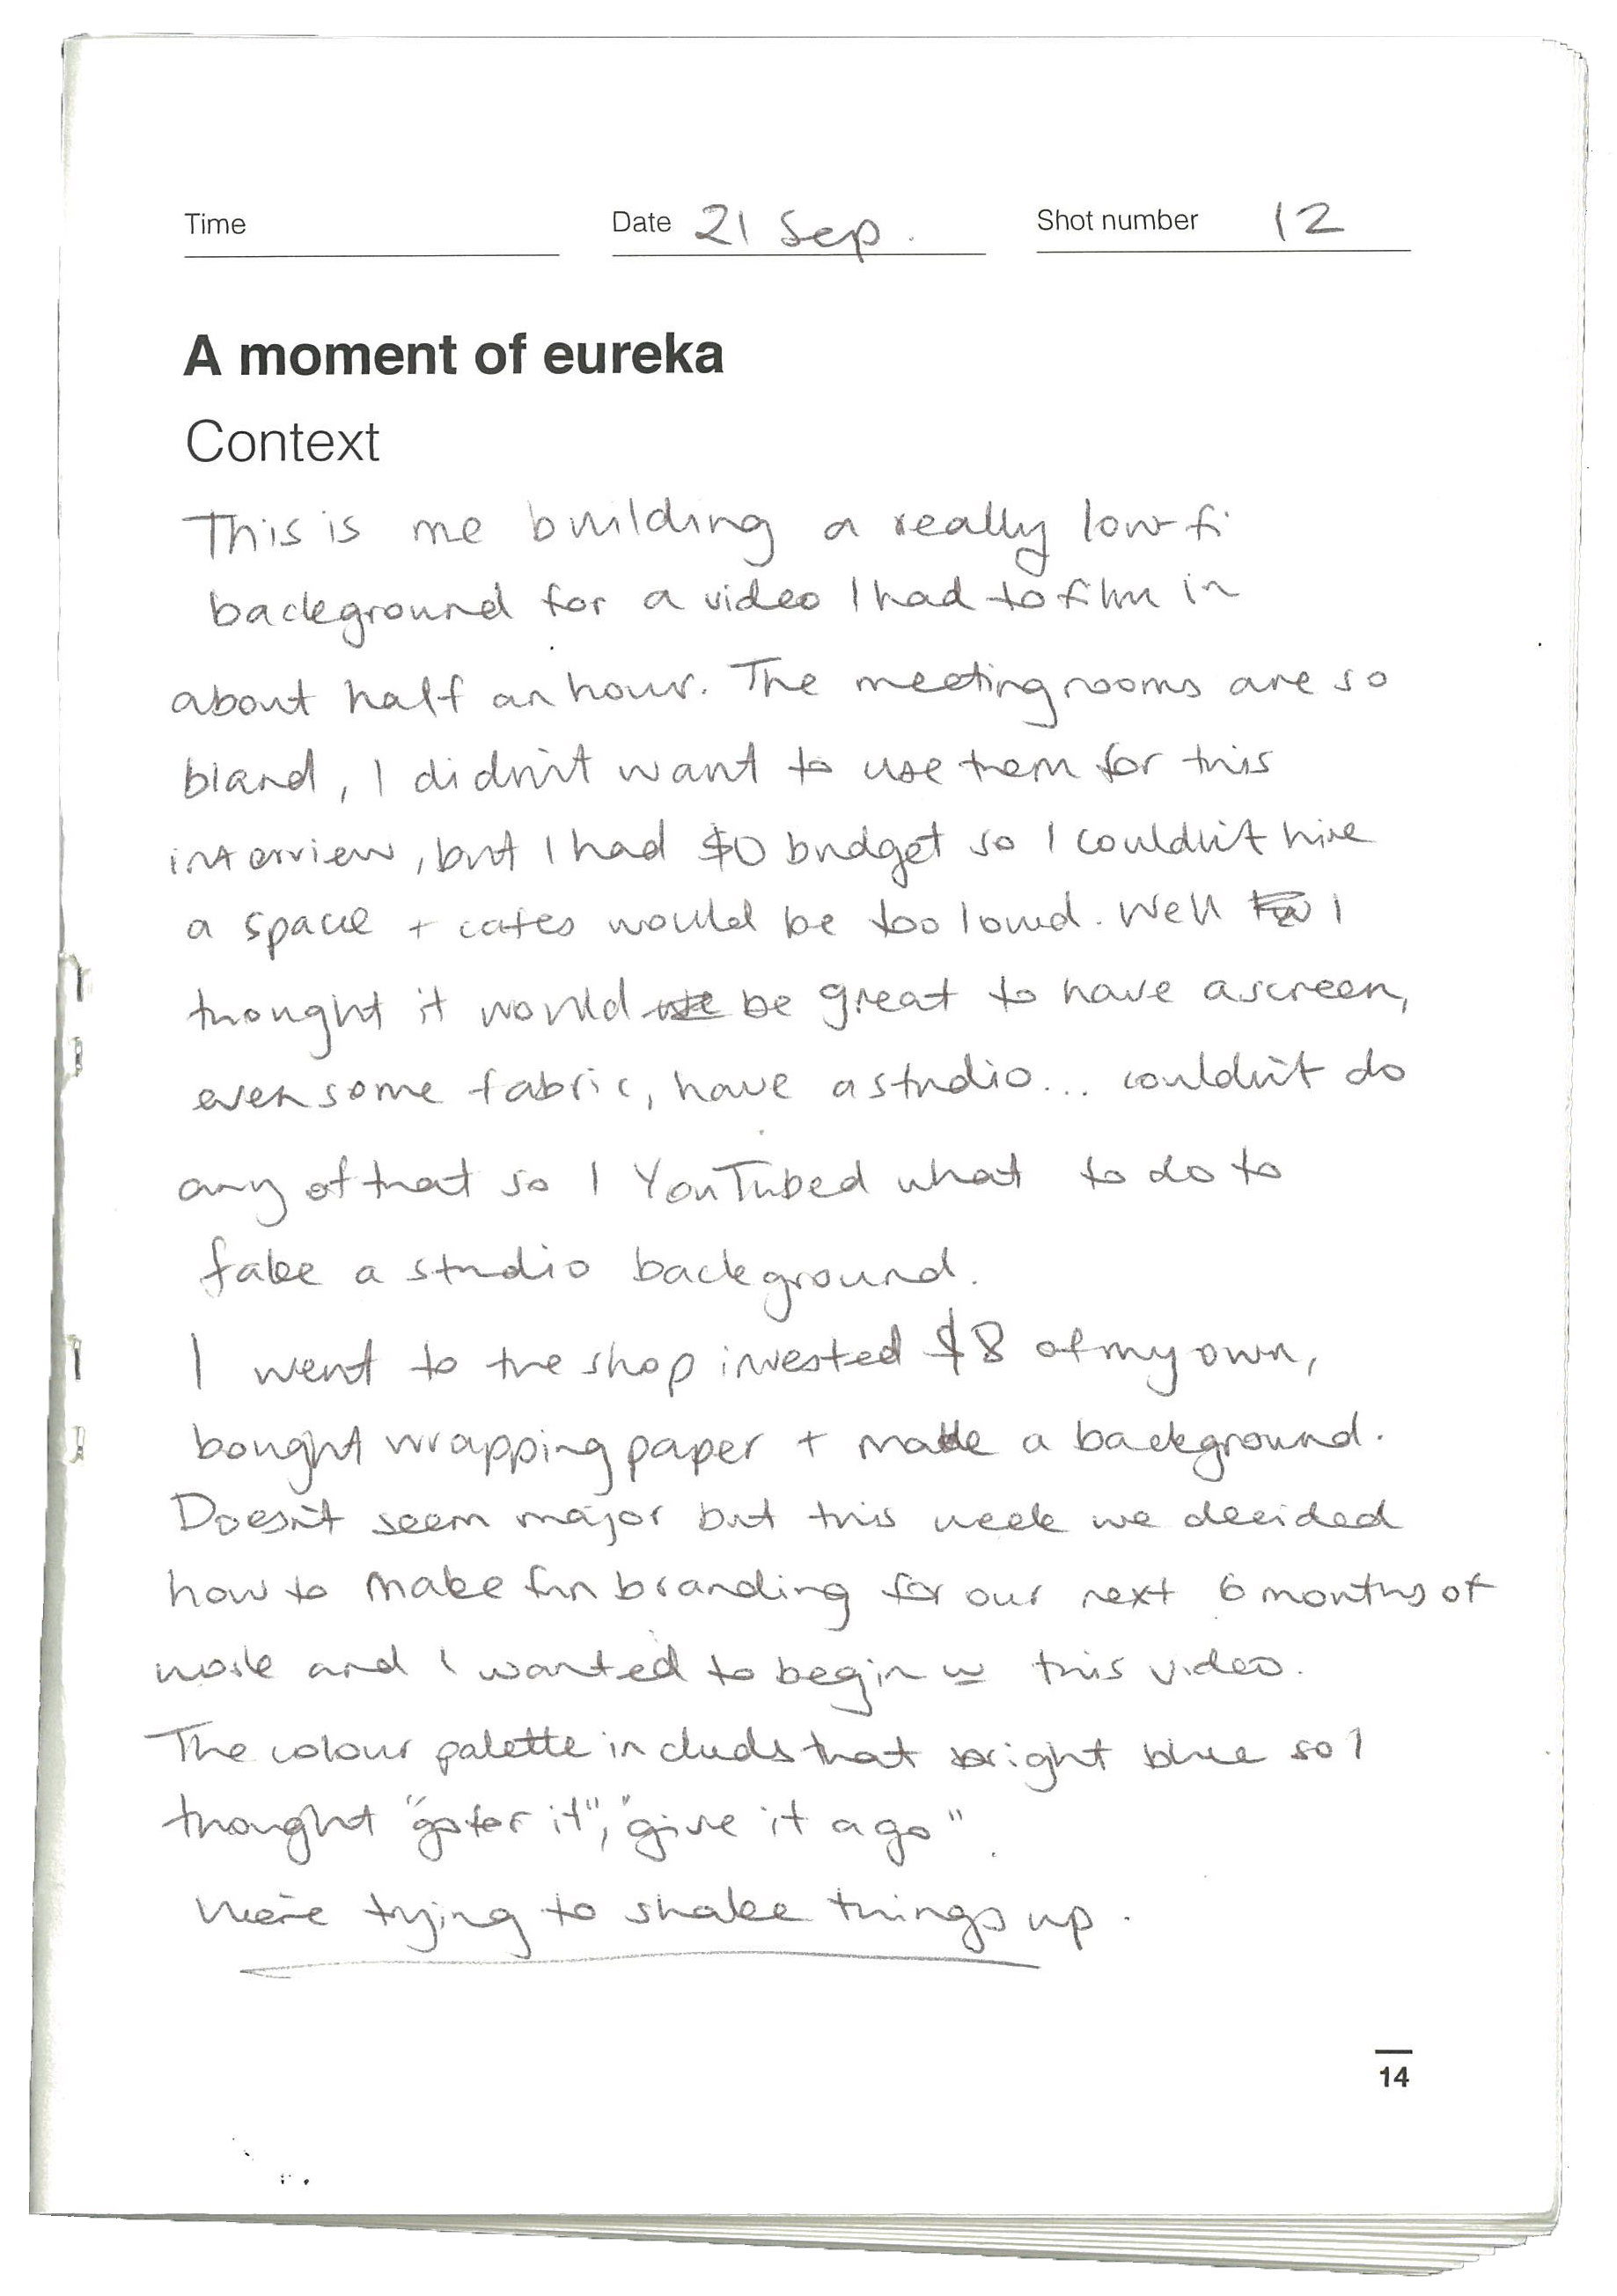 Time Date 21 Sep. Shot number 12
A moment of eureka
Context
This is me building a really low-fi
background for a video I had to film in
about half an hour. The meeting rooms are so
bland, I didn't want to use them for this
interview, but I had $0 budget so I couldn't hire
a space + cafes would be too loud. Well I
thought it would be great to have a screen,
even some fabric, have a studio... couldn't do
any of that so I YouTubed what to do to
fake a studio background.
I went to the shop invested $8 of my own,
bought wrapping paper + made a background.
Doesn't seem major but this week we decided
how to make fun branding for our next 6 months of
work and I wanted to begin w this video.
The colour palette includs that bright blue so I
thought "go for it", "give it a go".
We're trying to shake things up.
14